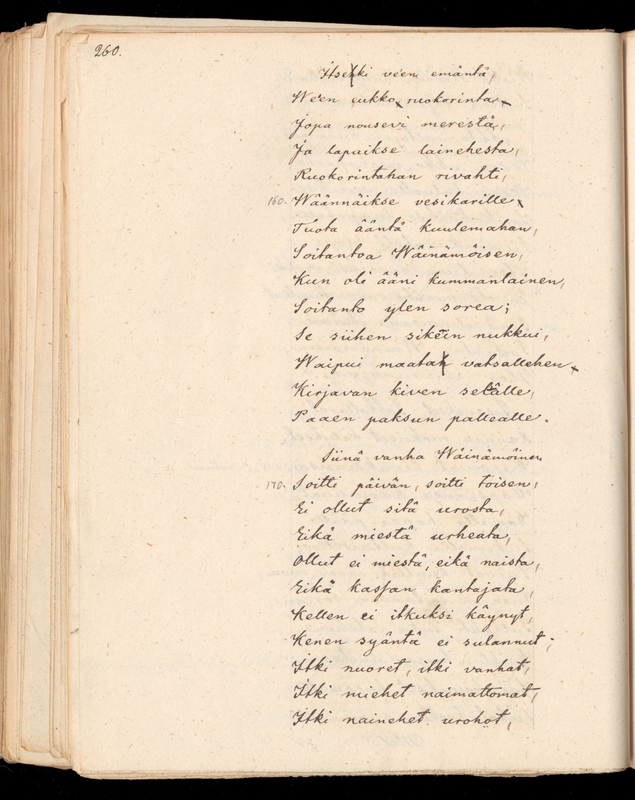 260.
Itsekki veen emäntä,
Ween eukko ruokorinta
Jopa nousevi merestä,
Ja lapaikse lainehesta,
Ruokorintahan rivahti,
160. Wäännäikse vesikarille
Tuota ääntä kuulemahan,
Soitantoa Wäinämöisen,
Kun oli ääni kummanlainen,
Soitanto ylen sorea;
Se siihen sikein nukkui,
Waipui maatah vatsallehen
Kirjavan kiven selälle,
Paaen paksun pallealle.
Siinä vanha Wäinämöinen
170. Soitti päivän, soitti toisen,
Ei ollut sitä urosta,
Eikä miestä urheata,
Ollut ei miestä, eikä naista,
Eikä kassan kantajata,
Kellen ei itkuksi käynyt,
Kenen syäntä ei sulannut;
Itki nuoret, itki vanhat,
Itki miehet naimattomat,
Itki nainehet urohot,